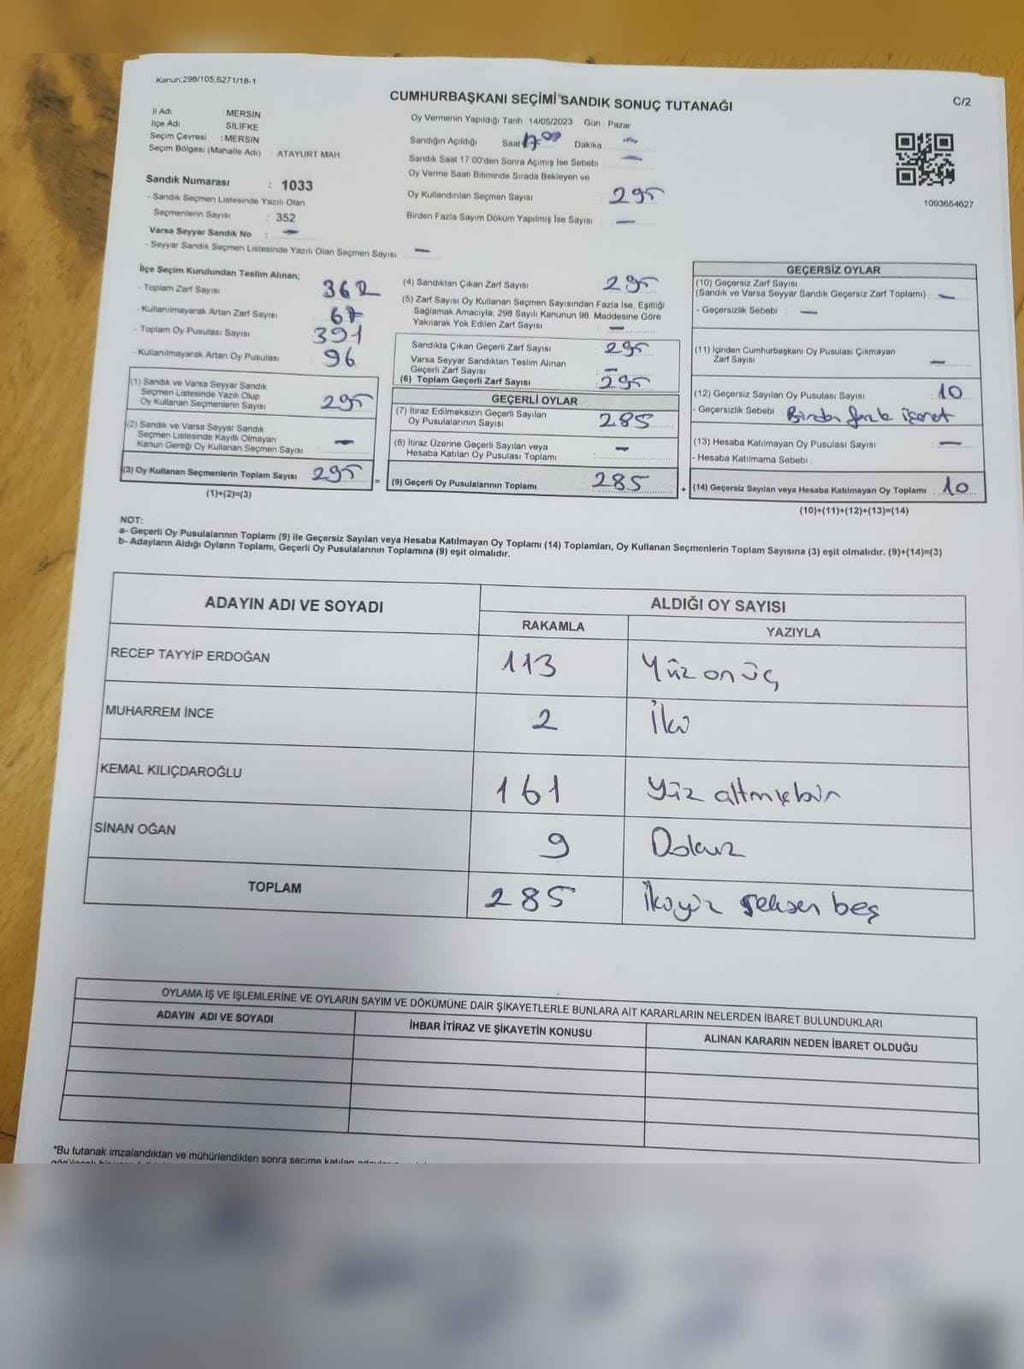 Kanun;298/105,6271/18-1
CUMHURBAŞKANI SEÇİMİ SANDIK SONUÇ TUTANAĞI
C/2
İl Adı MERSİN
İlçe Adı SİLİFKE
Seçim Çevresi : MERSİN
Seçim Bölgesi (Mahalle Adı) : ATAYURT MAH
Sandık Numarası : 1033
- Sandık Seçmen Listesinde Yazılı Olan
Seçmenlerin Sayısı : 352
Varsa Seyyar Sandık No : —
- Seyyar Sandık Seçmen Listesinde Yazılı Olan Seçmen Sayısı —
Oy Vermenin Yapıldığı Tarih 14/05/2023 Gün : Pazar
Sandığın Açıldığı Saat 17.00 Dakika —
Sandık Saat 17:00'den Sonra Açılmış İse Sebebi —
Oy Verme Saati Bitiminde Sırada Bekleyen ve
Oy Kullandırılan Seçmen Sayısı 295
Birden Fazla Sayım Döküm Yapılmış İse Sayısı —
1093654627
İlçe Seçim Kurulundan Teslim Alınan;
- Toplam Zarf Sayısı 362
- Kullanılmayarak Artan Zarf Sayısı 67
- Toplam Oy Pusulası Sayısı 391
- Kullanılmayarak Artan Oy Pusulası 96
(1) Sandık ve Varsa Seyyar Sandık
Seçmen Listesinde Yazılı Olup
Oy Kullanan Seçmenlerin Sayısı 295
(2) Sandık ve Varsa Seyyar Sandık
Seçmen Listesinde Kayıtlı Olmayan
Kanun Gereği Oy Kullanan Seçmen Sayısı —
(3) Oy Kullanan Seçmenlerin Toplam Sayısı 295
(1)+(2)=(3)
(4) Sandıktan Çıkan Zarf Sayısı 295
(5) Zarf Sayısı Oy Kullanan Seçmen Sayısından Fazla İse, Eşitliği
Sağlamak Amacıyla, 298 Sayılı Kanunun 98. Maddesine Göre
Yakılarak Yok Edilen Zarf Sayısı —
Sandıkta Çıkan Geçerli Zarf Sayısı 295
Varsa Seyyar Sandıktan Teslim Alınan
Geçerli Zarf Sayısı —
(6) Toplam Geçerli Zarf Sayısı 295
GEÇERLİ OYLAR
(7) İtiraz Edilmeksizin Geçerli Sayılan
Oy Pusulalarının Sayısı 285
(8) İtiraz Üzerine Geçerli Sayılan veya
Hesaba Katılan Oy Pusulası Toplamı —
= (9) Geçerli Oy Pusulalarının Toplamı 285
GEÇERSİZ OYLAR
(10) Geçersiz Zarf Sayısı
(Sandık ve Varsa Seyyar Sandık Geçersiz Zarf Toplamı) —
- Geçersizlik Sebebi : —
(11) İçinden Cumhurbaşkanı Oy Pusulası Çıkmayan
Zarf Sayısı —
(12) Geçersiz Sayılan Oy Pusulası Sayısı 10
- Geçersizlik Sebebi : Birden fazla işaret
(13) Hesaba Katılmayan Oy Pusulası Sayısı : —
- Hesaba Katılmama Sebebi :
+ (14) Geçersiz Sayılan veya Hesaba Katılmayan Oy Toplamı : 10
(10)+(11)+(12)+(13)=(14)
NOT:
a- Geçerli Oy Pusulalarının Toplamı (9) ile Geçersiz Sayılan veya Hesaba Katılmayan Oy Toplamı (14) Toplamları, Oy Kullanan Seçmenlerin Toplam Sayısına (3) eşit olmalıdır. (9)+(14)=(3)
b- Adayların Aldığı Oyların Toplamı, Geçerli Oy Pusulalarının Toplamına (9) eşit olmalıdır.
ADAYIN ADI VE SOYADI
ALDIĞI OY SAYISI
RAKAMLA YAZIYLA
RECEP TAYYİP ERDOĞAN 113 Yüz onüç
MUHARREM İNCE 2 İki
KEMAL KILIÇDAROĞLU 161 Yüz altmışbir
SİNAN OĞAN 9 Dokuz
TOPLAM 285 İkiyüz seksen beş
OYLAMA İŞ VE İŞLEMLERİNE VE OYLARIN SAYIM VE DÖKÜMÜNE DAİR ŞİKAYETLERLE BUNLARA AİT KARARLARIN NELERDEN İBARET BULUNDUKLARI
ADAYIN ADI VE SOYADI İHBAR İTİRAZ VE ŞİKAYETİN KONUSU ALINAN KARARIN NEDEN İBARET OLDUĞU
*Bu tutanak imzalandıktan ve mühürlendikten sonra seçime katılan